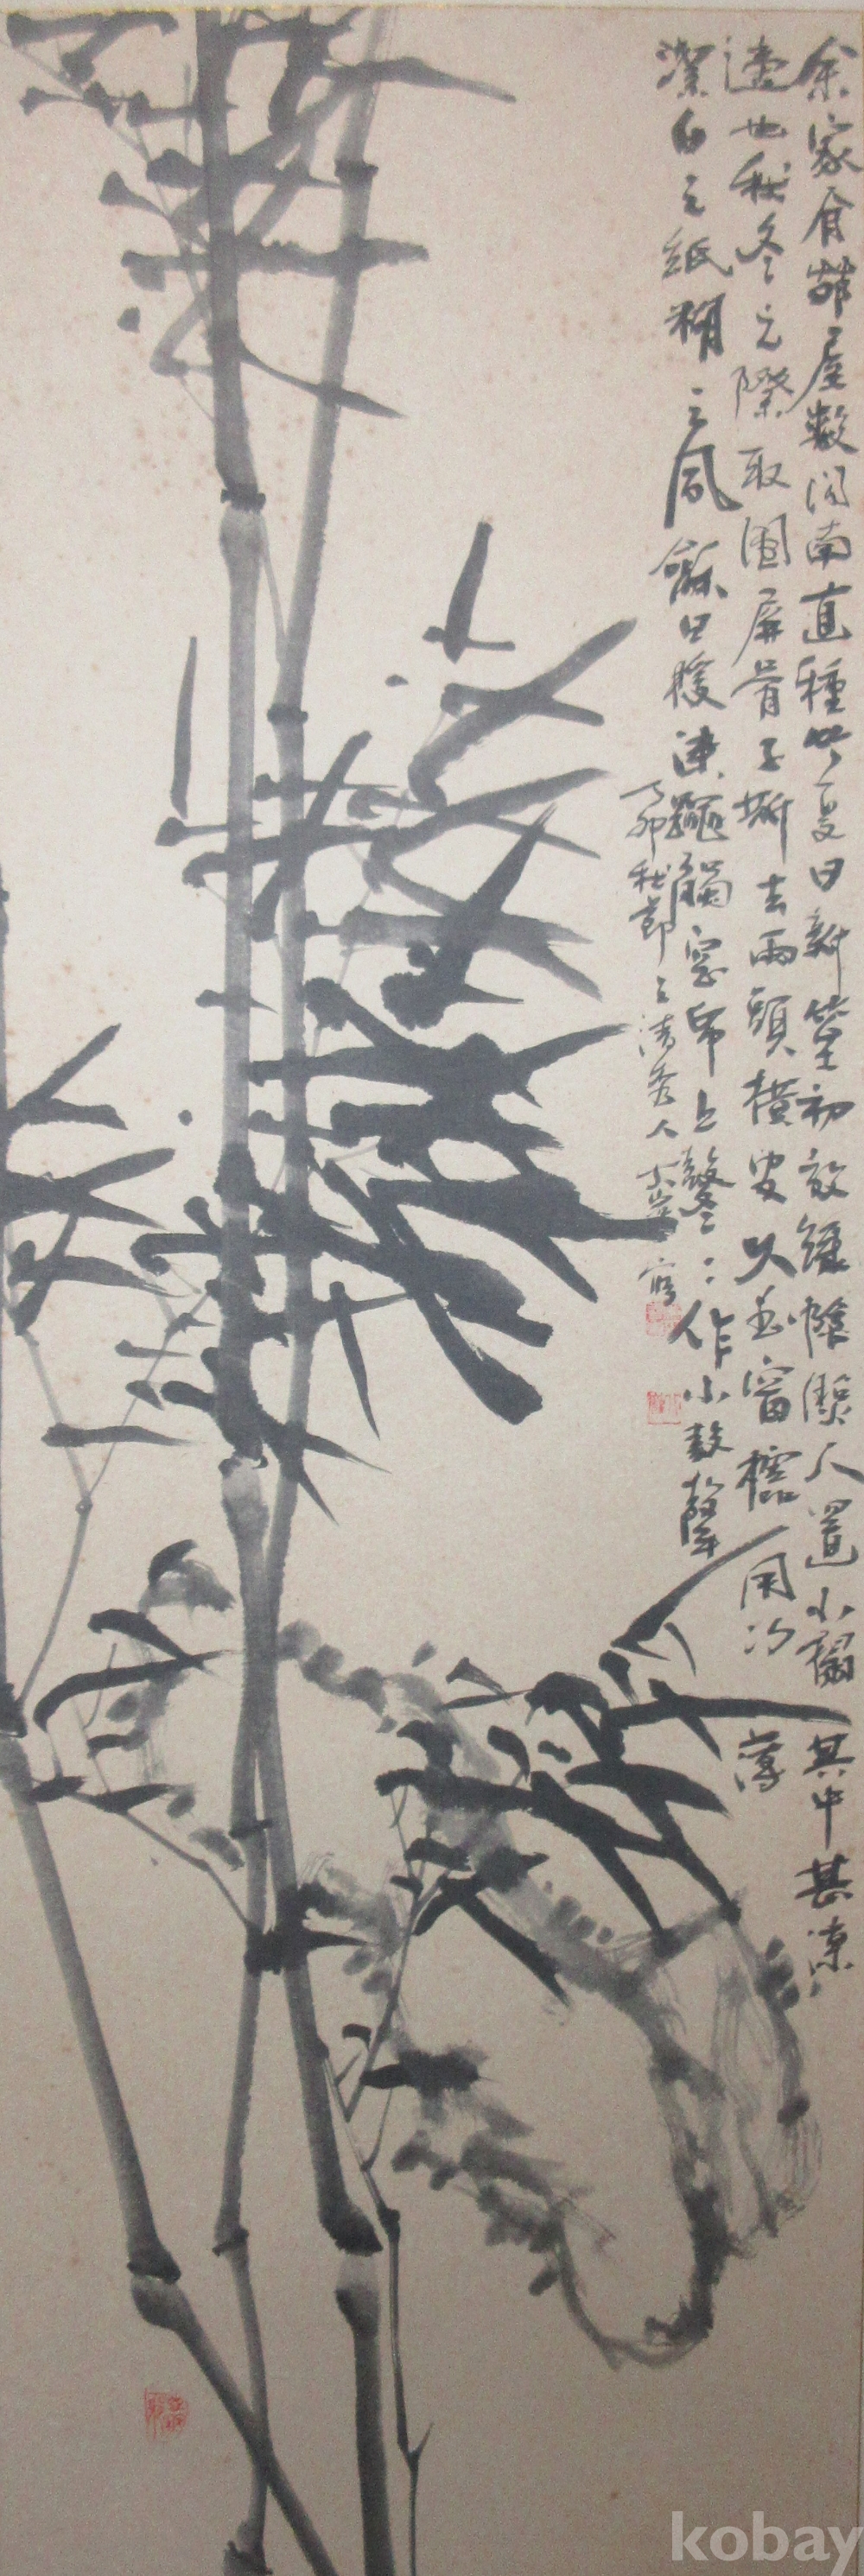 余家有茆屋數間南面種竹夏日新篁初放綠陰照人置小榻其中甚凉
適也秋冬之際取圍屏骨子斷去兩頭橫安以為窗欞用勻薄
潔白之紙糊之風和日暖凍蠅觸窓紙上鼕〻作小鼓聲
丁卯秋節之清秀人
寫
kobay